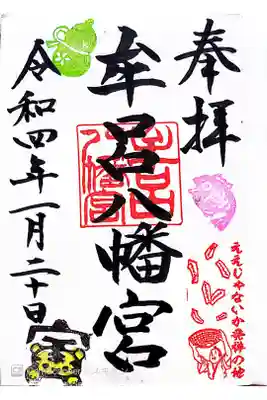 奉拝
牟呂八幡宮
令和四年一月二十日
ええじゃないか発祥の地